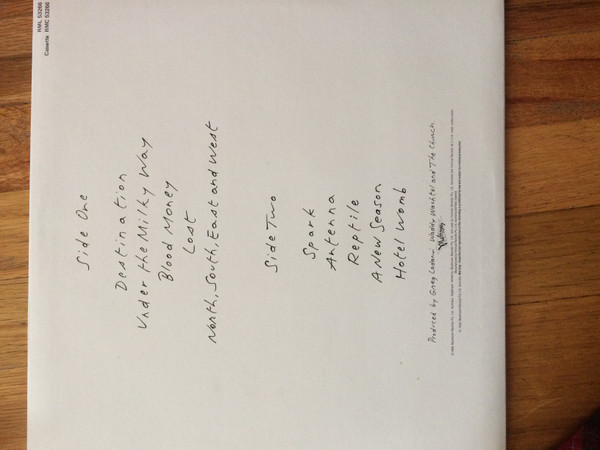 RML 53266
Cassette RMC 53266
Side One
Destination
Under the Milky Way
Blood Money
Lost
North, South, East and West
Side Two
Spark
Antenna
Reptile
A New Season
Hotel Womb
Produced by Greg Ladanyi Waddy Wachtel and The Church.